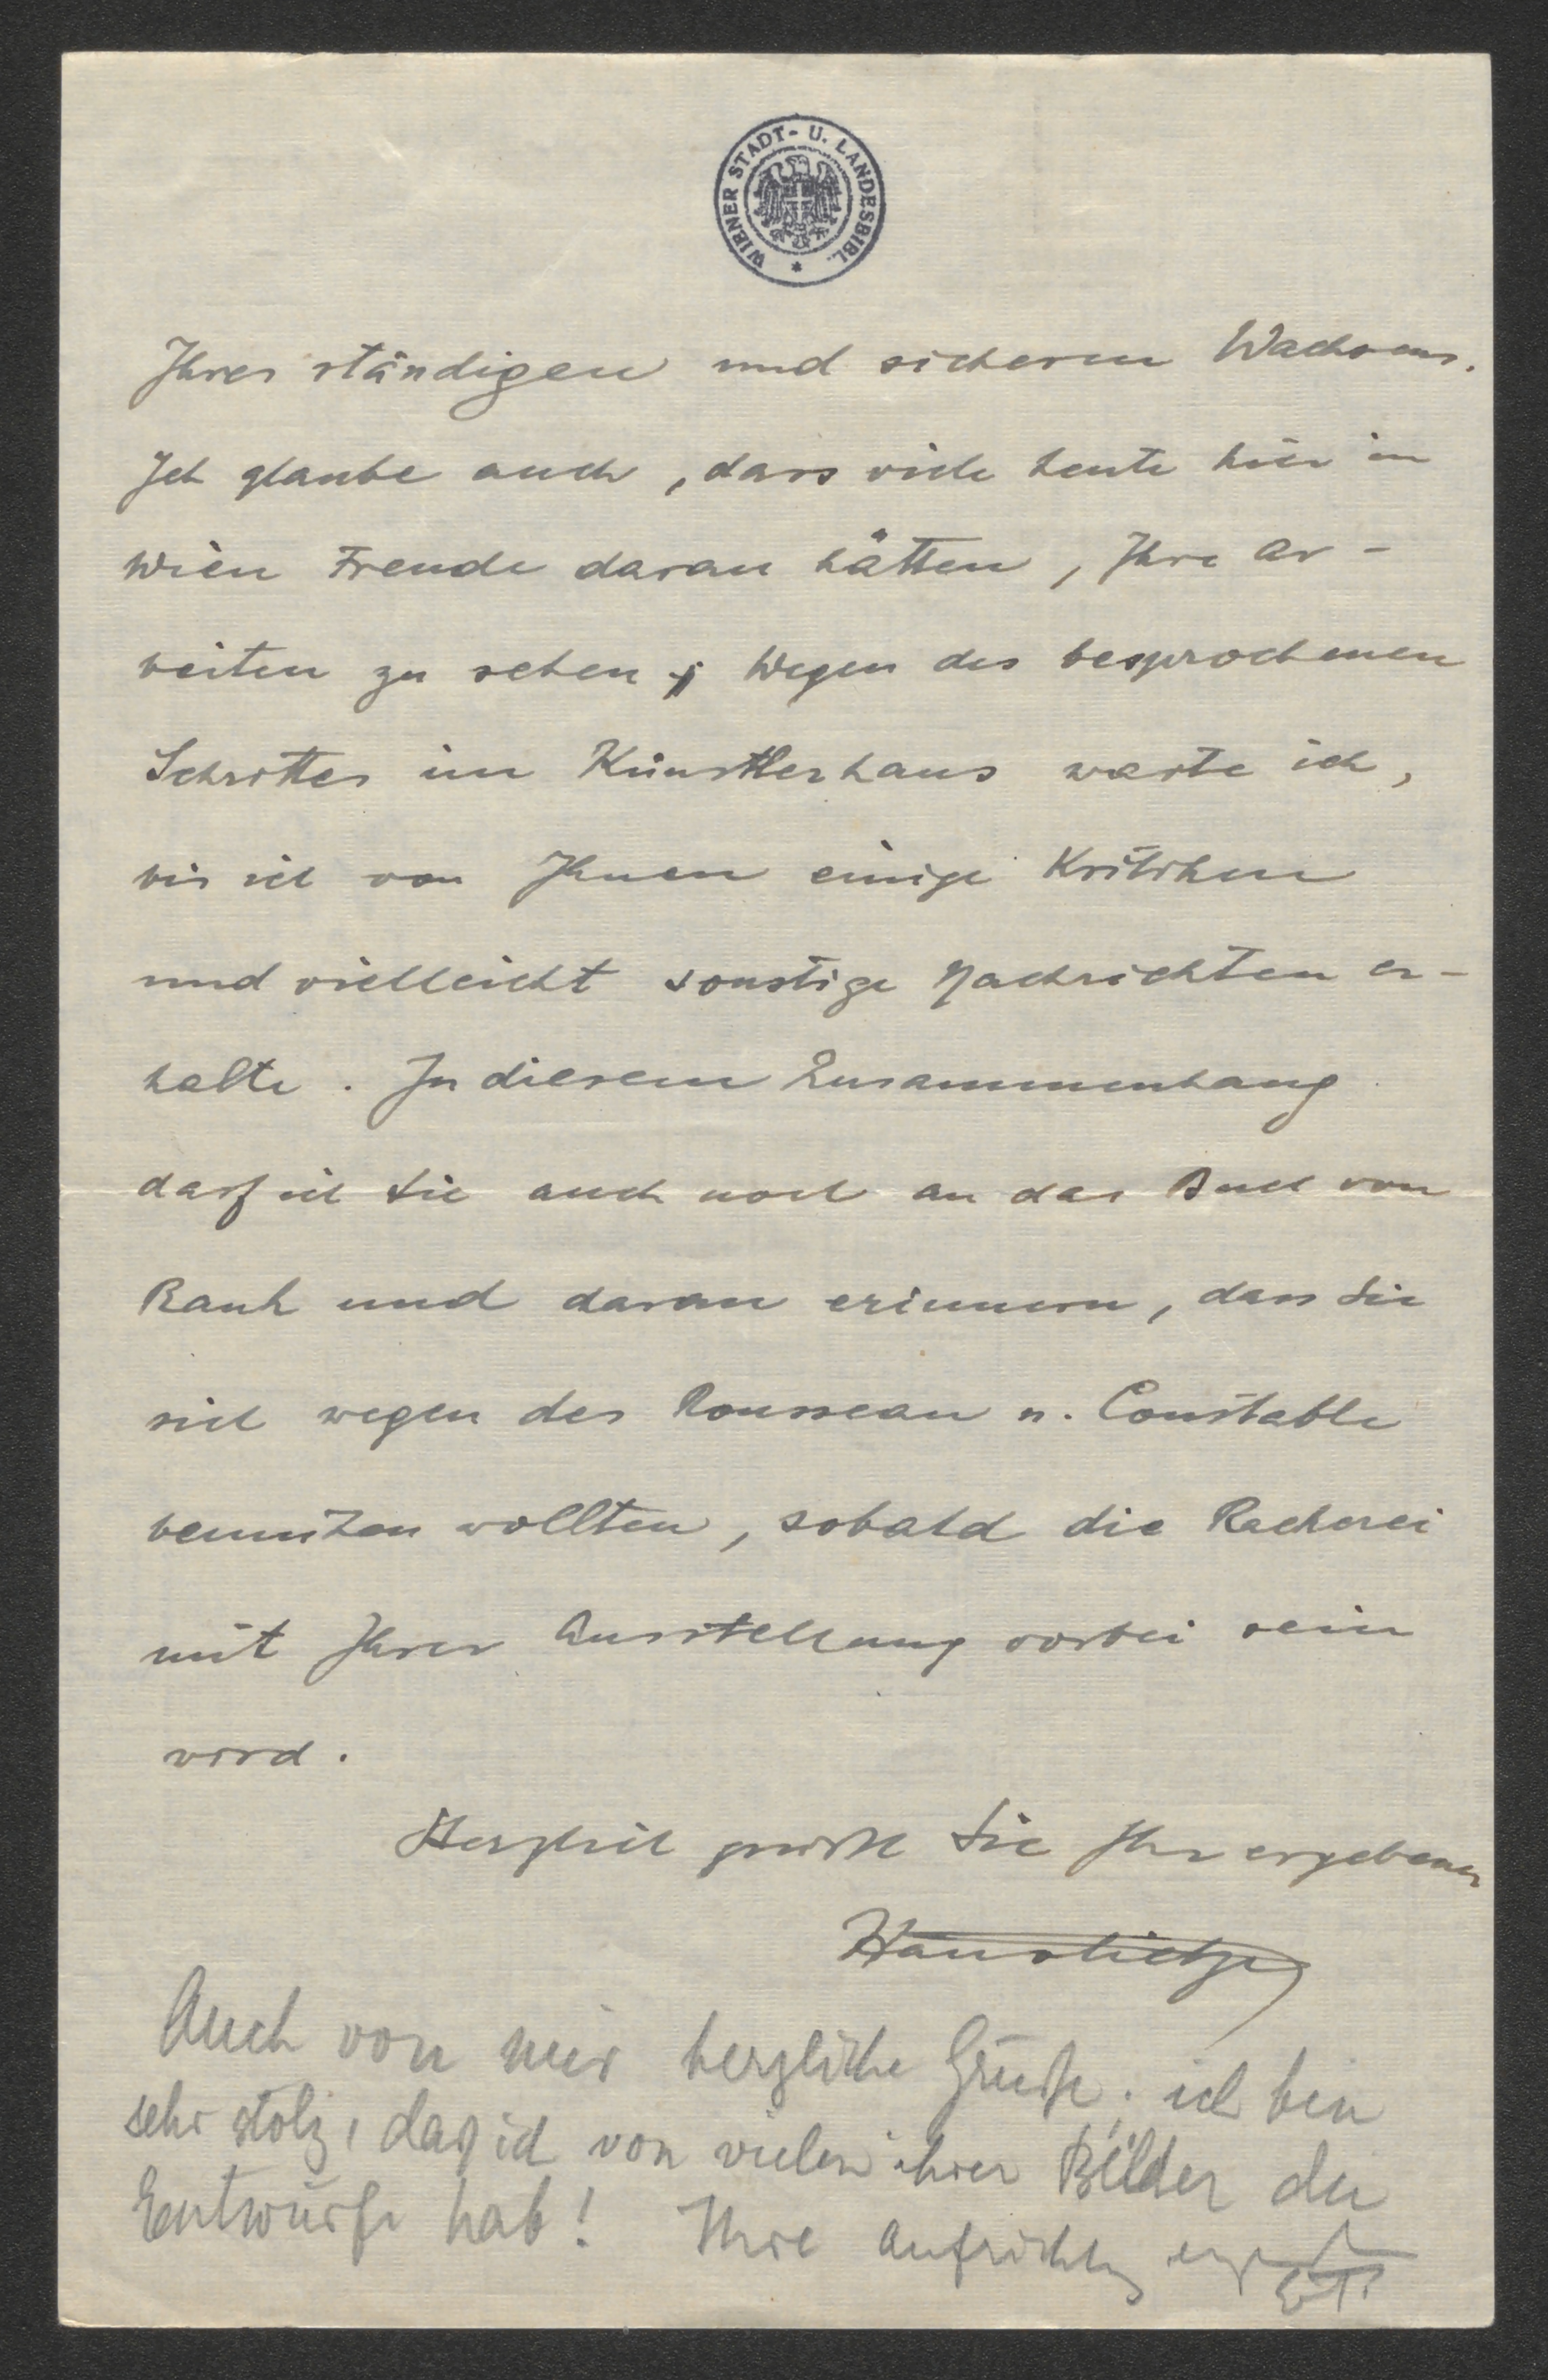 WIENER STADT- U. LANDESBIBL. *
Ihres ständigen und sicheren Wachsens.
Ich glaube auch, dass viele heute hier in
Wien Freude daran hätten, Ihre Ar-
beiten zu sehen; Wegen des besprochenen
Schrittes im Künstlerhaus warte ich,
bis ich von Ihnen einige Kritiken
und vielleicht sonstige Nachrichten er-
halte. In diesem Zusammenhang
darf ich Sie auch noch an das Buch von
Rank und daran erinnern, dass Sie
sich wegen des Rousseau u. Constable
bemühen wollten, sobald die Rackerei
mit Ihrer Ausstellung vorbei sein
wird.
Herzlich grüsst Sie Ihr ergebener
Hans Tietze
Auch von mir herzliche Grüße. ich bin
sehr stolz, daß ich von vielen ihrer Bilder die
Entwürfe hab! Ihre aufrichtig